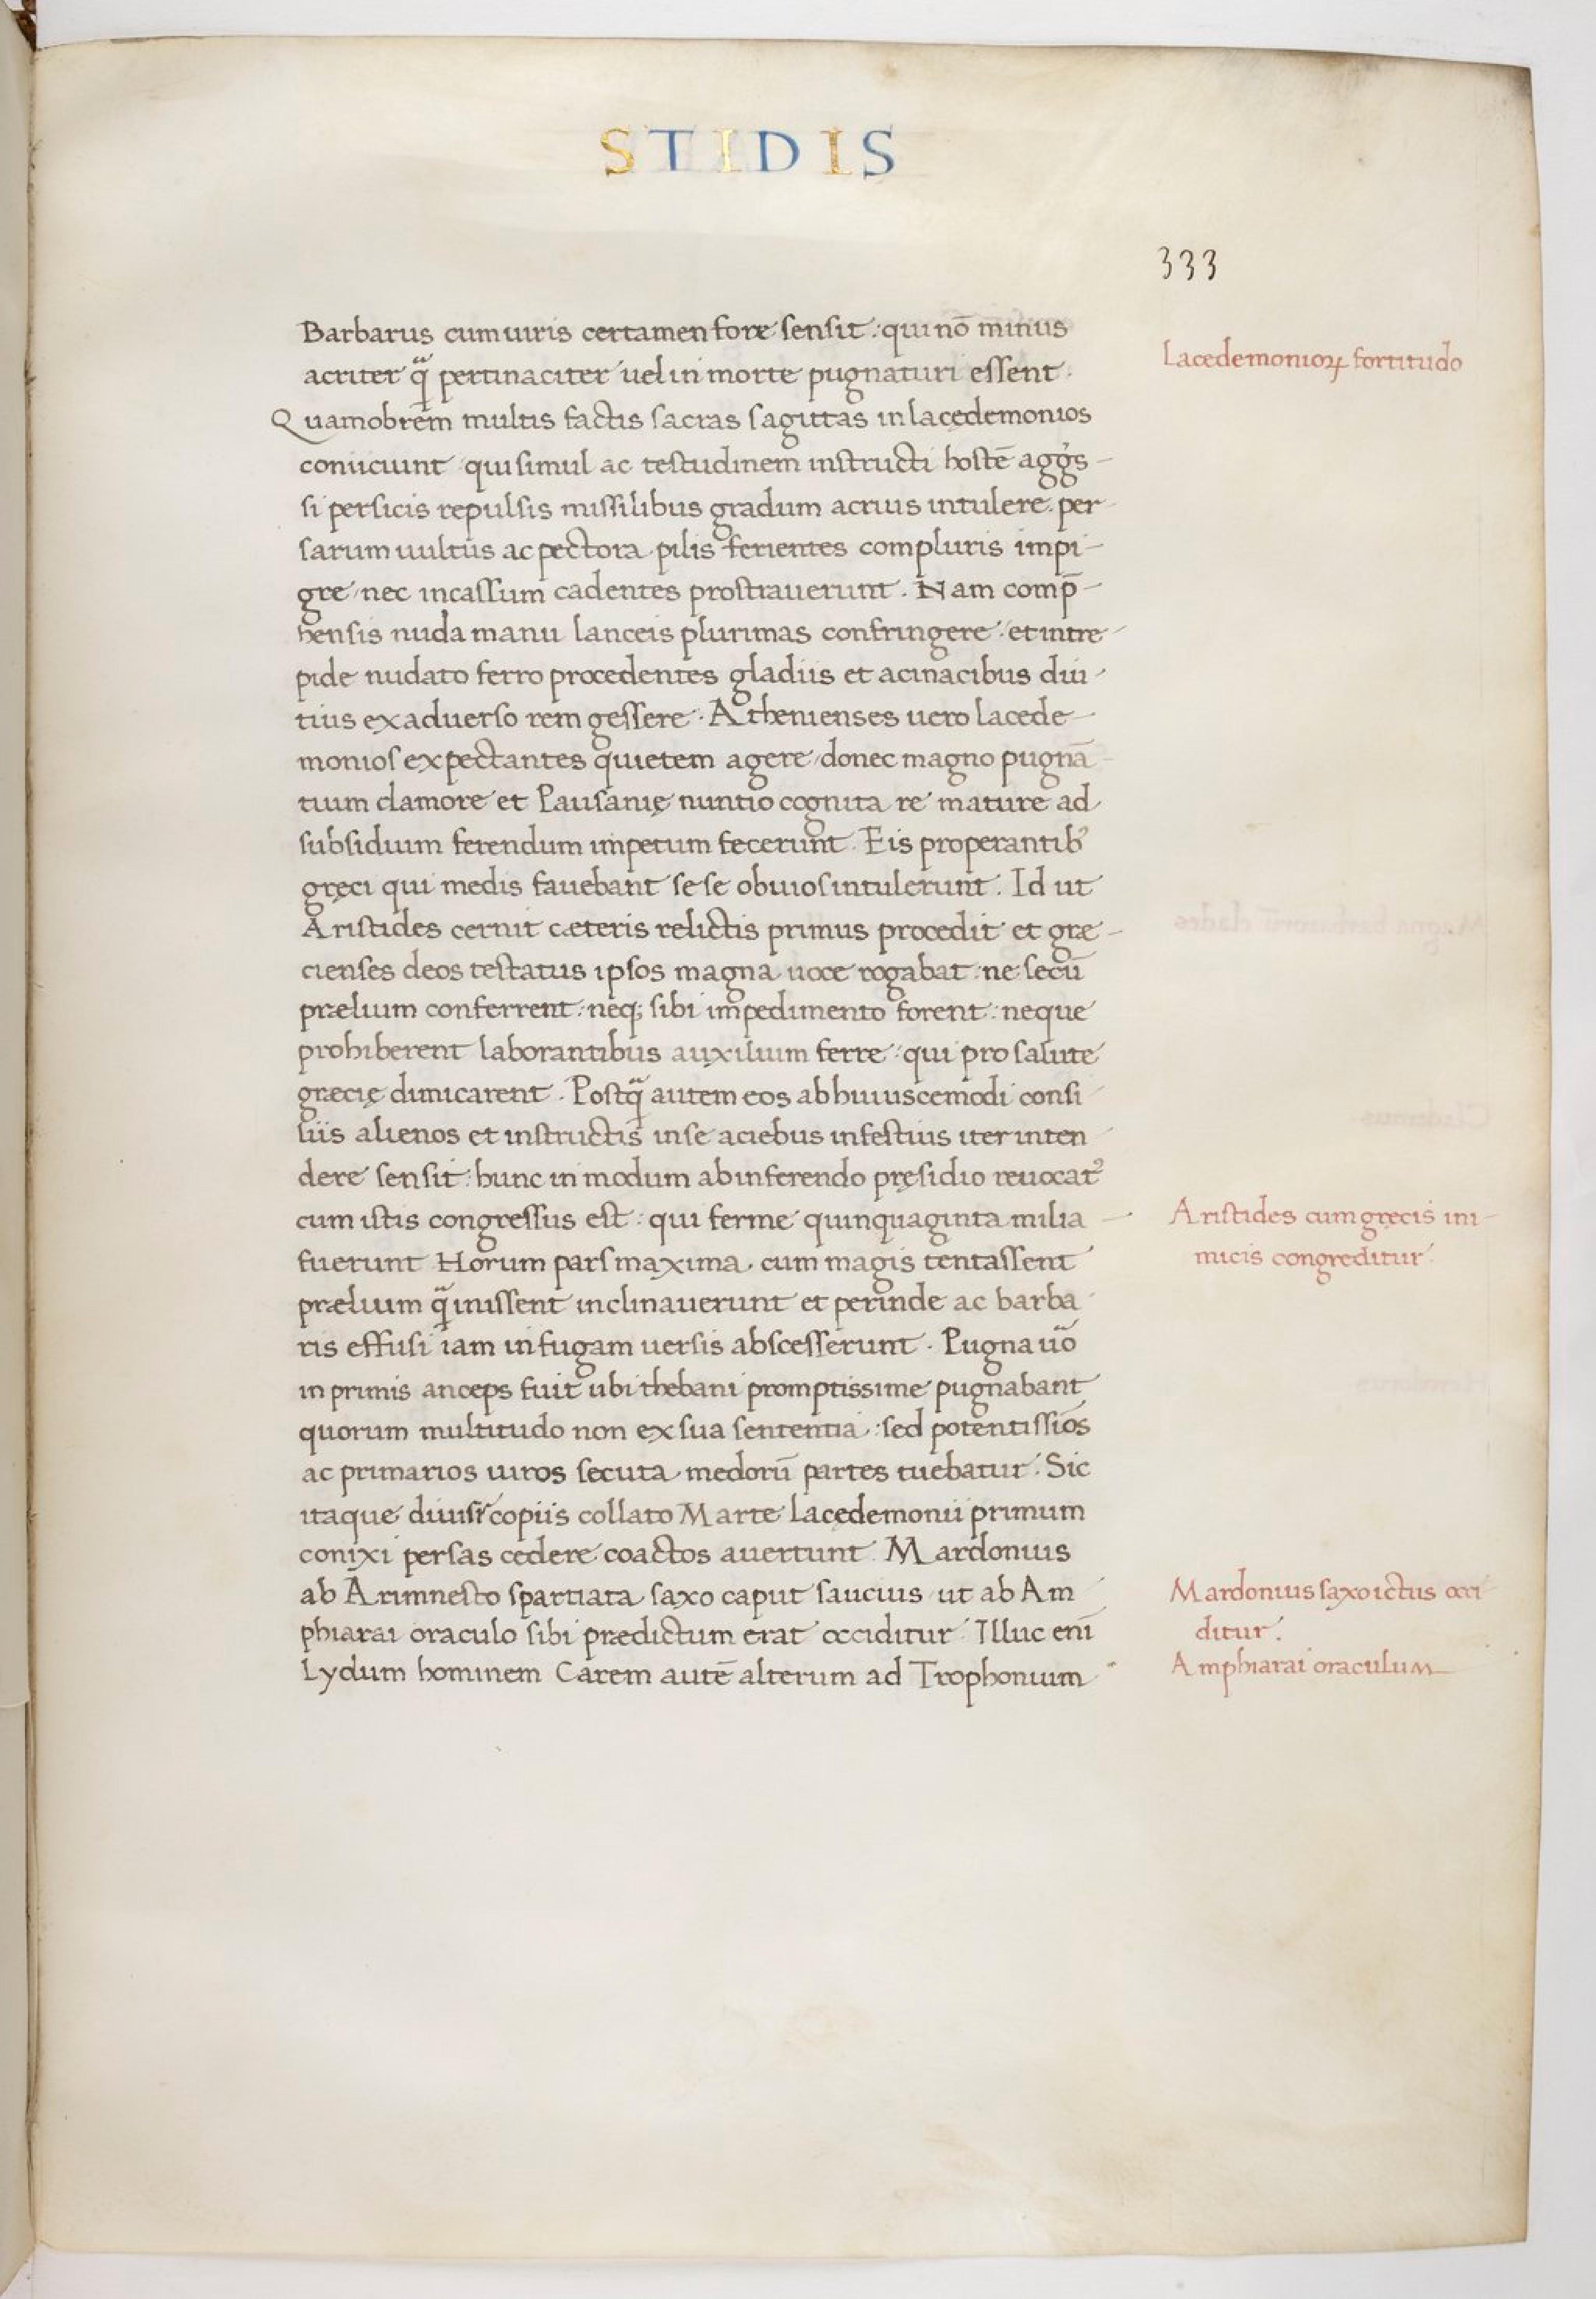 STIDIS
333
Barbarus cum uiris certamen fore sensit: qui nō minus
acriter q̃ pertinaciter uel in morte pugnaturi essent.
Quamobrem multis factis sacras sagittas in lacędemonios
coniiciunt qui simul ac testudinem instructi hostē aggs̉-
si persicis repulsis missilibus gradum acrius intulere. per
sarum uultus ac pectora pilis ferientes compluris impi-
gre nec incassum cadentes prostrauerunt. Nam comp̄-
hensis nuda manu lanceis plurimas confringere: et intre-
pide nudato ferro procedentes gladiis et acinacibus diu-
tius ex aduerso rem gessere. Athenienses uero lacede-
monios expectantes quietem agere donec magno pugnā-
tium clamore et Pausanię nuntio cognita re mature ad
subsidium ferendum impetum fecerunt. Eis properantib⁹
gręci qui medis fauebant sese obuios intulerunt. Id ut
Aristides cernit cæteris relictis primus procedit et græ-
cienses deos testatus ipsos magna uoce rogabat: ne secū
prælium conferrent: neq; sibi impedimento forent: neque
prohiberent laborantibus auxilium ferre: qui pro salute
græcię dimicarent. Postq̃ autem eos ab huiuscemodi consi
liis alienos et instructis in se aciebus infestius iter inten
dere sensit: hunc in modum ab inferendo pręsidio reuocat᷒
cum istis congressus est: qui ferme quinquaginta milia
fuerunt Horum pars maxima, cum magis tentassent
prælium q̃ inissent inclinauerunt et perinde ac barba
ris effusi iam in fugam uersis abscesserunt. Pugna uō
in primis anceps fuit ubi thebani promptissime pugnabant
quorum multitudo non ex sua sententia: sed potentissīos
ac primarios uiros secuta medorū partes tuebatur. Sic
itaque diuisis copiis collato Marte Lacędemonii primum
conixi persas cedere coactos auertunt. Mardonius
ab Arimnesto spartiata saxo caput saucius ut ab Am
phiarai oraculo sibi prædictum erat occiditur. Illuc enī
Lydum hominem Carem autē alterum ad Trophonium
Lacedemonioꝝ fortitudo
Aristides cum gręcis ini-
micis congreditur.
Mardonius saxo ictus occi
ditur.
Amphiarai oraculum